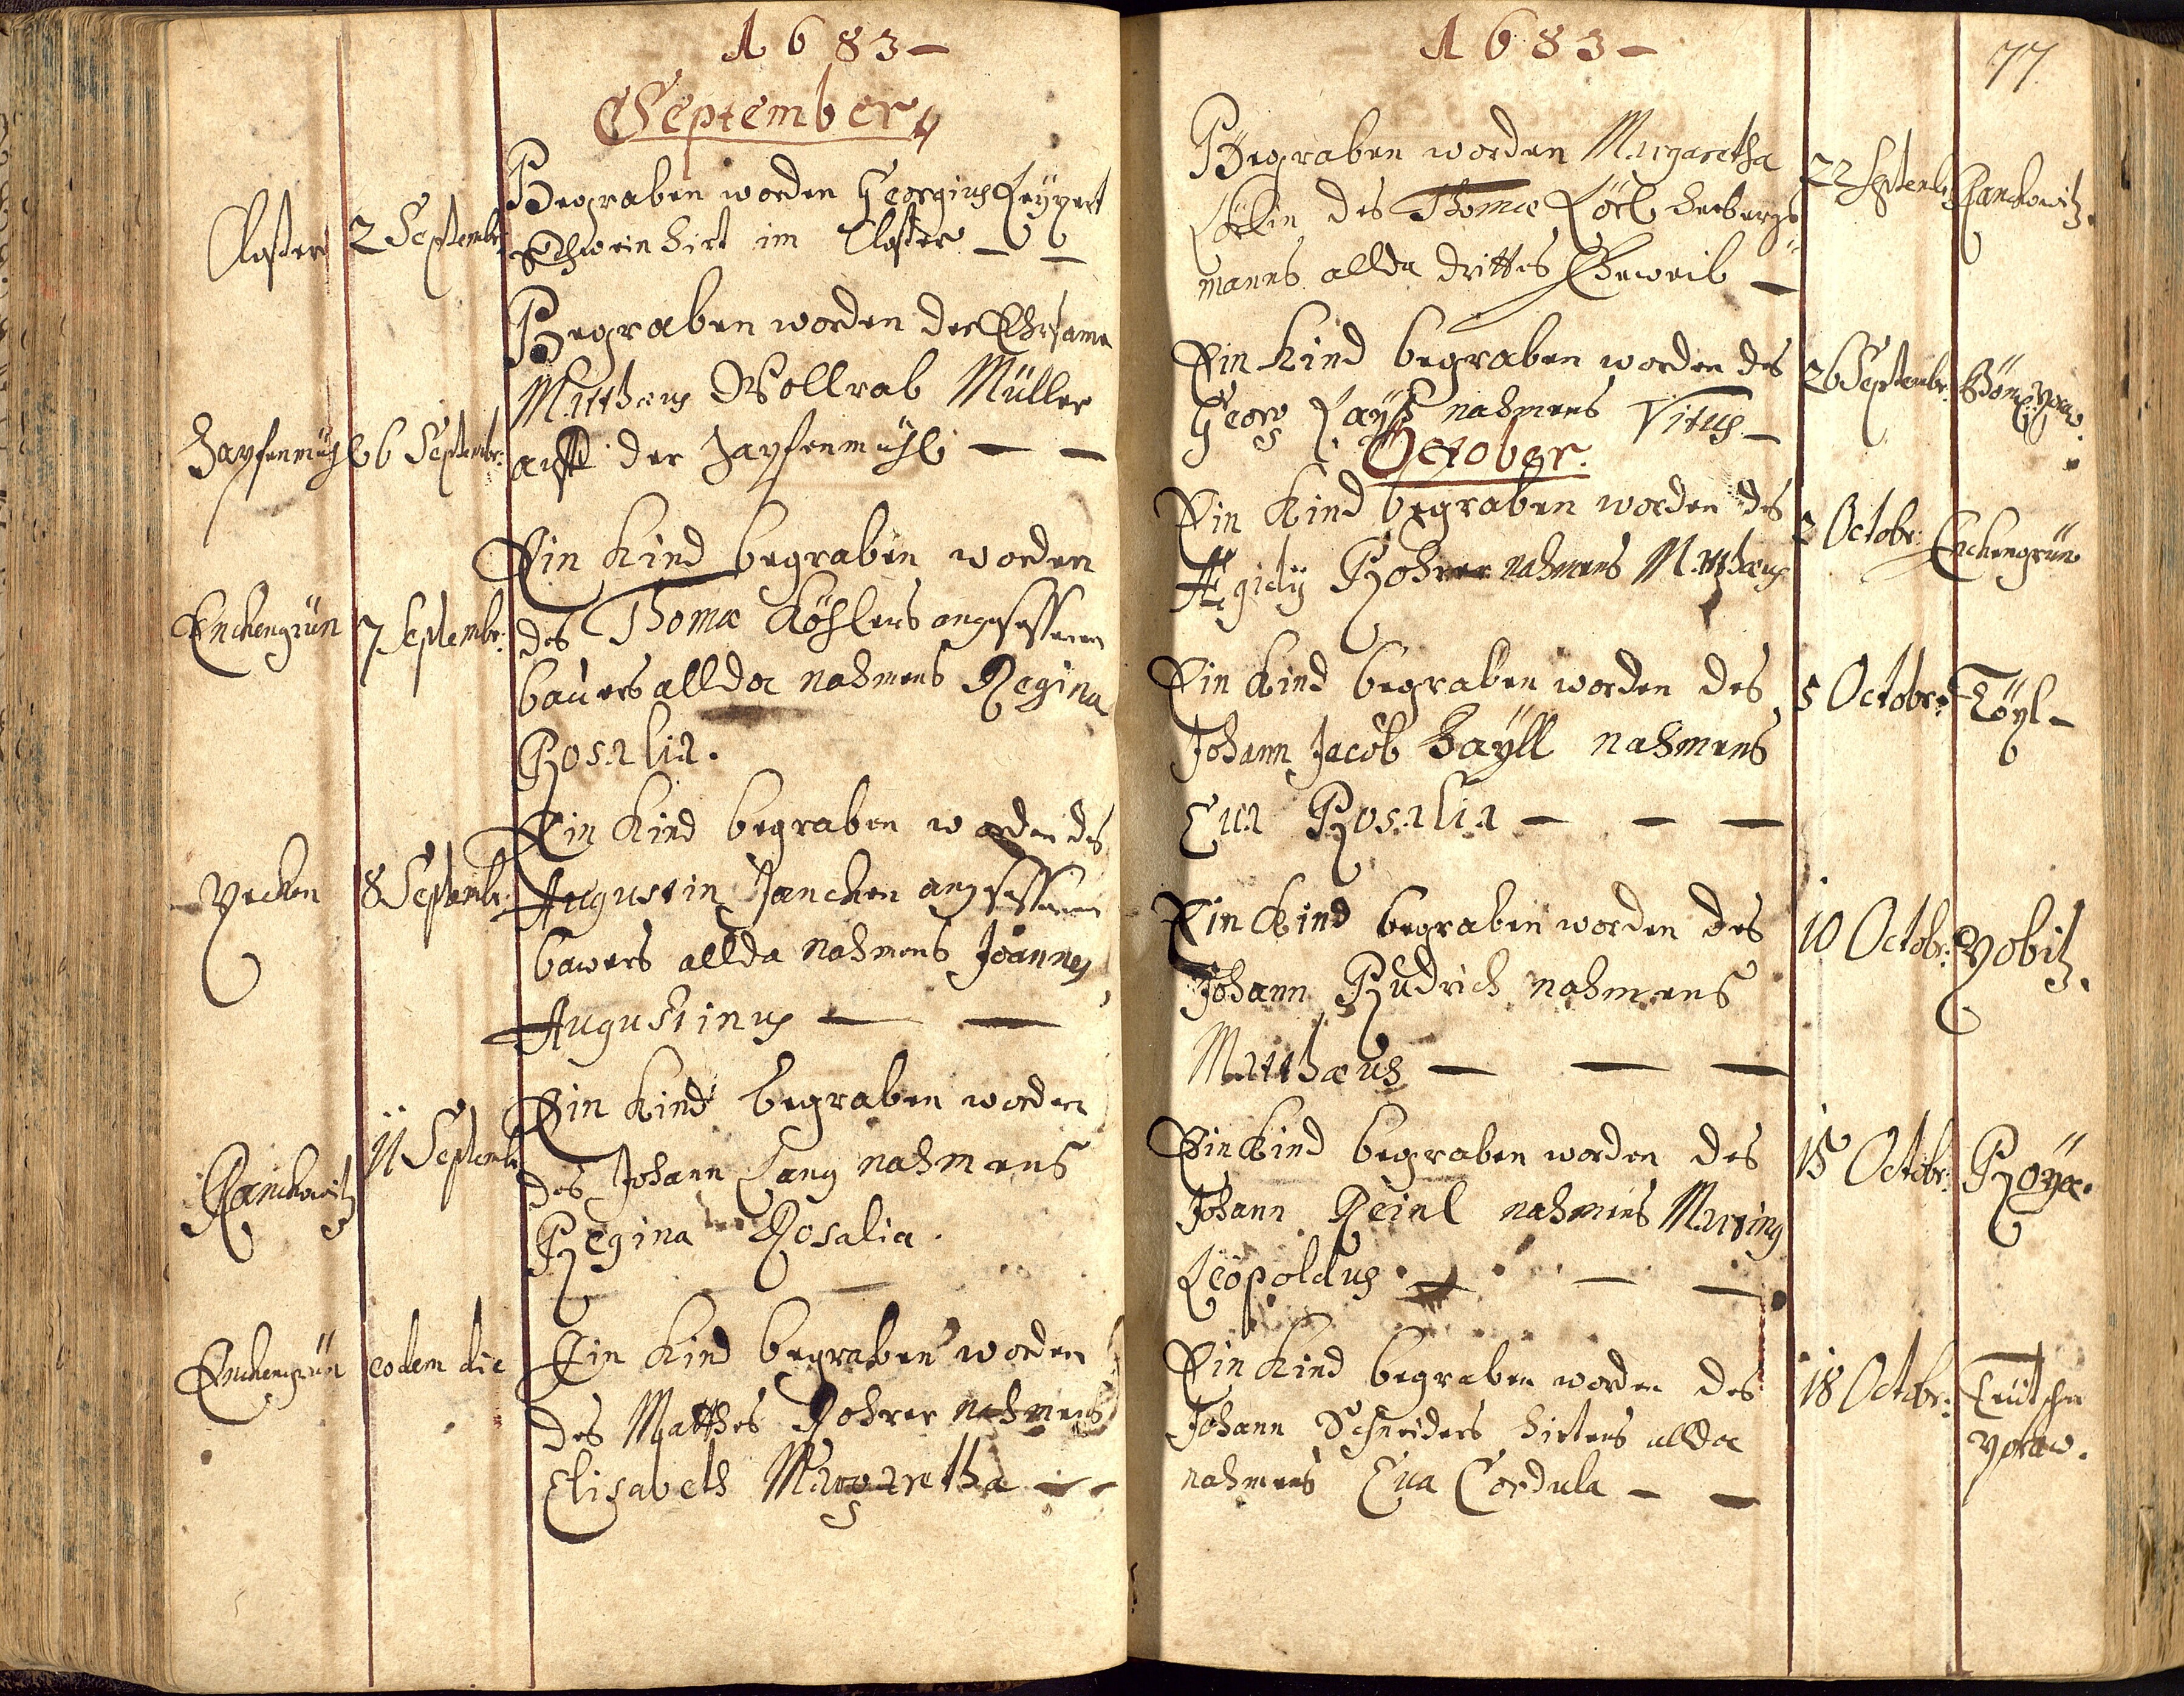 1683
September
Closter
2 Septembr:
Begraben worden Georgius
Schweinhirt im Closter
Begraben worden der Ehrsame
Matthæus Wollrab Müller
Zapfenmühl
6 Septembr:
auff der Zapfenmühl
Ein Kind begraben worden
Enckengrün
7 Septembr:
des Thomæ Köhlers angesessenen
bauers allda nahmens Regina
Rosalia.
Ein Kind begraben worden des
8 Septembr:
Augustin Janchen angesessenen
bawers allda nahmens Joannes
Augustinus
Ein Kind begraben worden
11 Septembr
Hanckowitz
des Johann Lang nahmens
Regina Rosalia.
Enckengrün
eodem die
Ein Kind begraben worden
des Matthes Rohrer nahmens
Elisabeth Margaretha
1683
77
Begraben worden Margaretha
22 Septemb
Hanckowitz.
des Thomæ Löcl herbergs
manns allda drittes Eheweib
Ein Kind begraben worden des
26 Septembr.
Georg nahmens Vitus
October.
Ein Kind begraben worden des
2 Octobr:
Enckengrün
Ægidy Rohrer nahmens Matthæus
Ein Kind begraben worden des
5 Octobr:
Töpl
Johann Jacob Zäyll nahmens
Eva Rosalia
Ein Kind begraben worden des
10 Octobr:
Pobitz.
Johann Rudrich nahmens
Matthæus
Ein Kind begraben worden des
15 Octobr:
Johann Reinl nahmens Martinus
Leopoldus
Ein Kind begraben worden des
18 Octobr:
Teutsch
Johann Schneiders hirtens allda
nahmens Eva Cordula